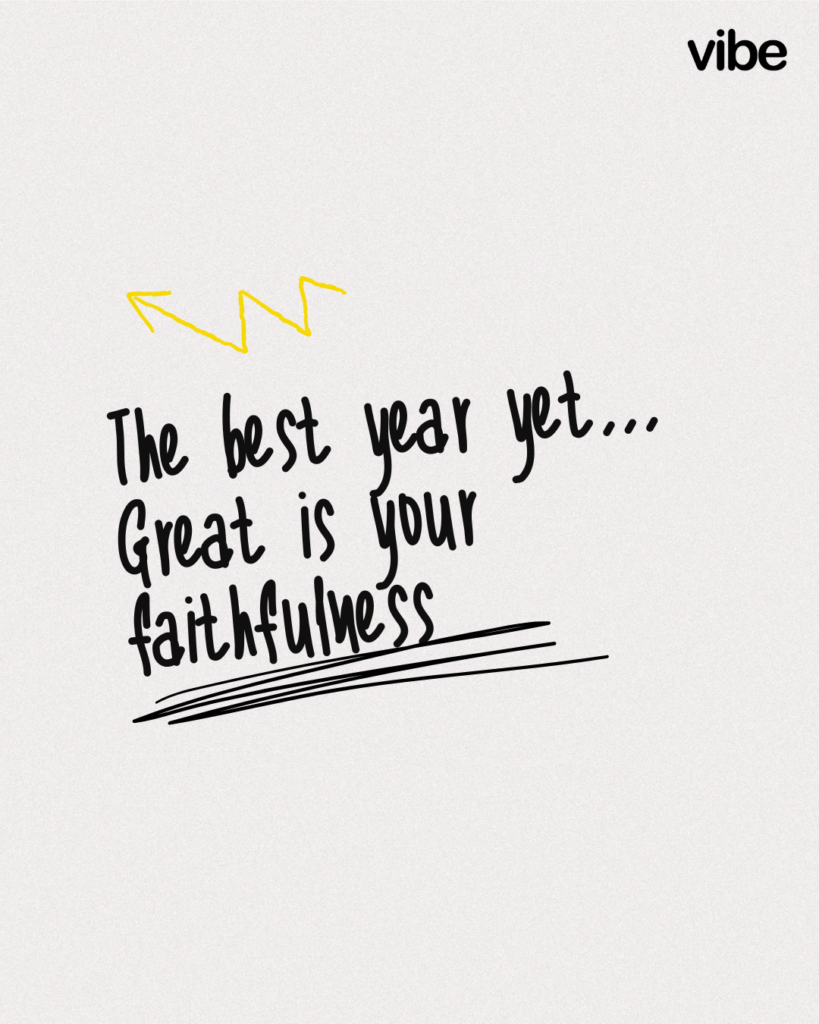 vibe
The best year yet...
Great is your
faithfulness